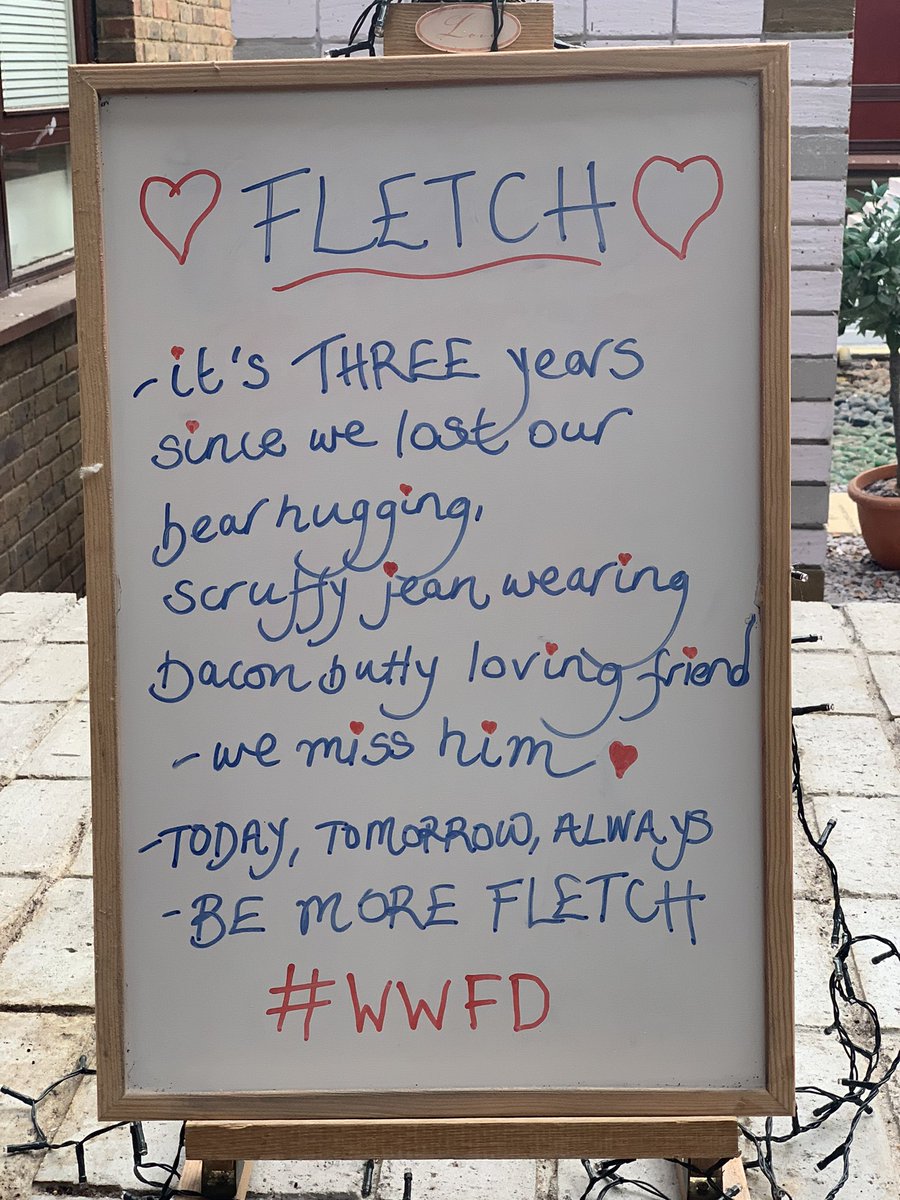 FLETCH
-it's THREE years
since we lost our
bear hugging,
scruffy jean wearing
bacon butty loving friend
-we miss him
-TODAY, TOMORROW, ALWAYS
-BE MORE FLETCH
#WWFD